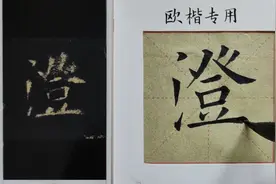 澄
欧楷专用
澄